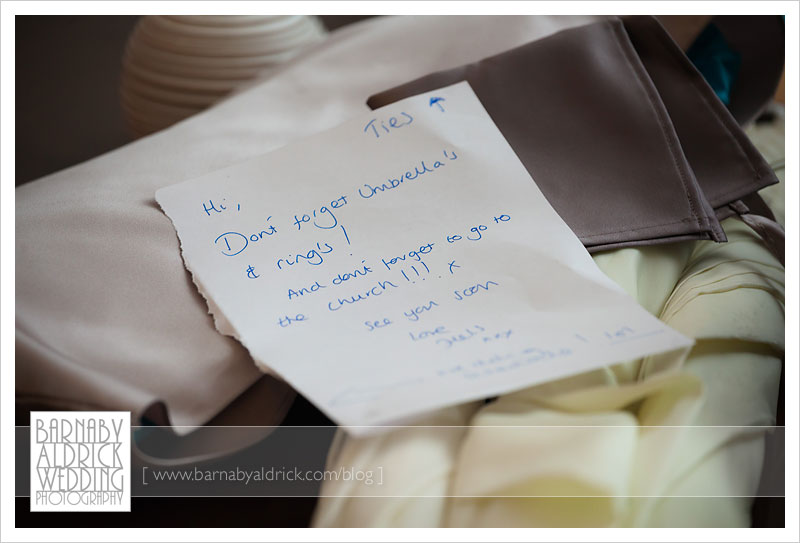 Ties ↑
Hi,
Don't forget Umbrella's
& ring's!
And don't forget to go to
the church!!! x
see you soon
Love
xxx
BARNABY
ALDRICK
WEDDING
PHOTOGRAPHY
[ www.barnabyaldrick.com/blog ]